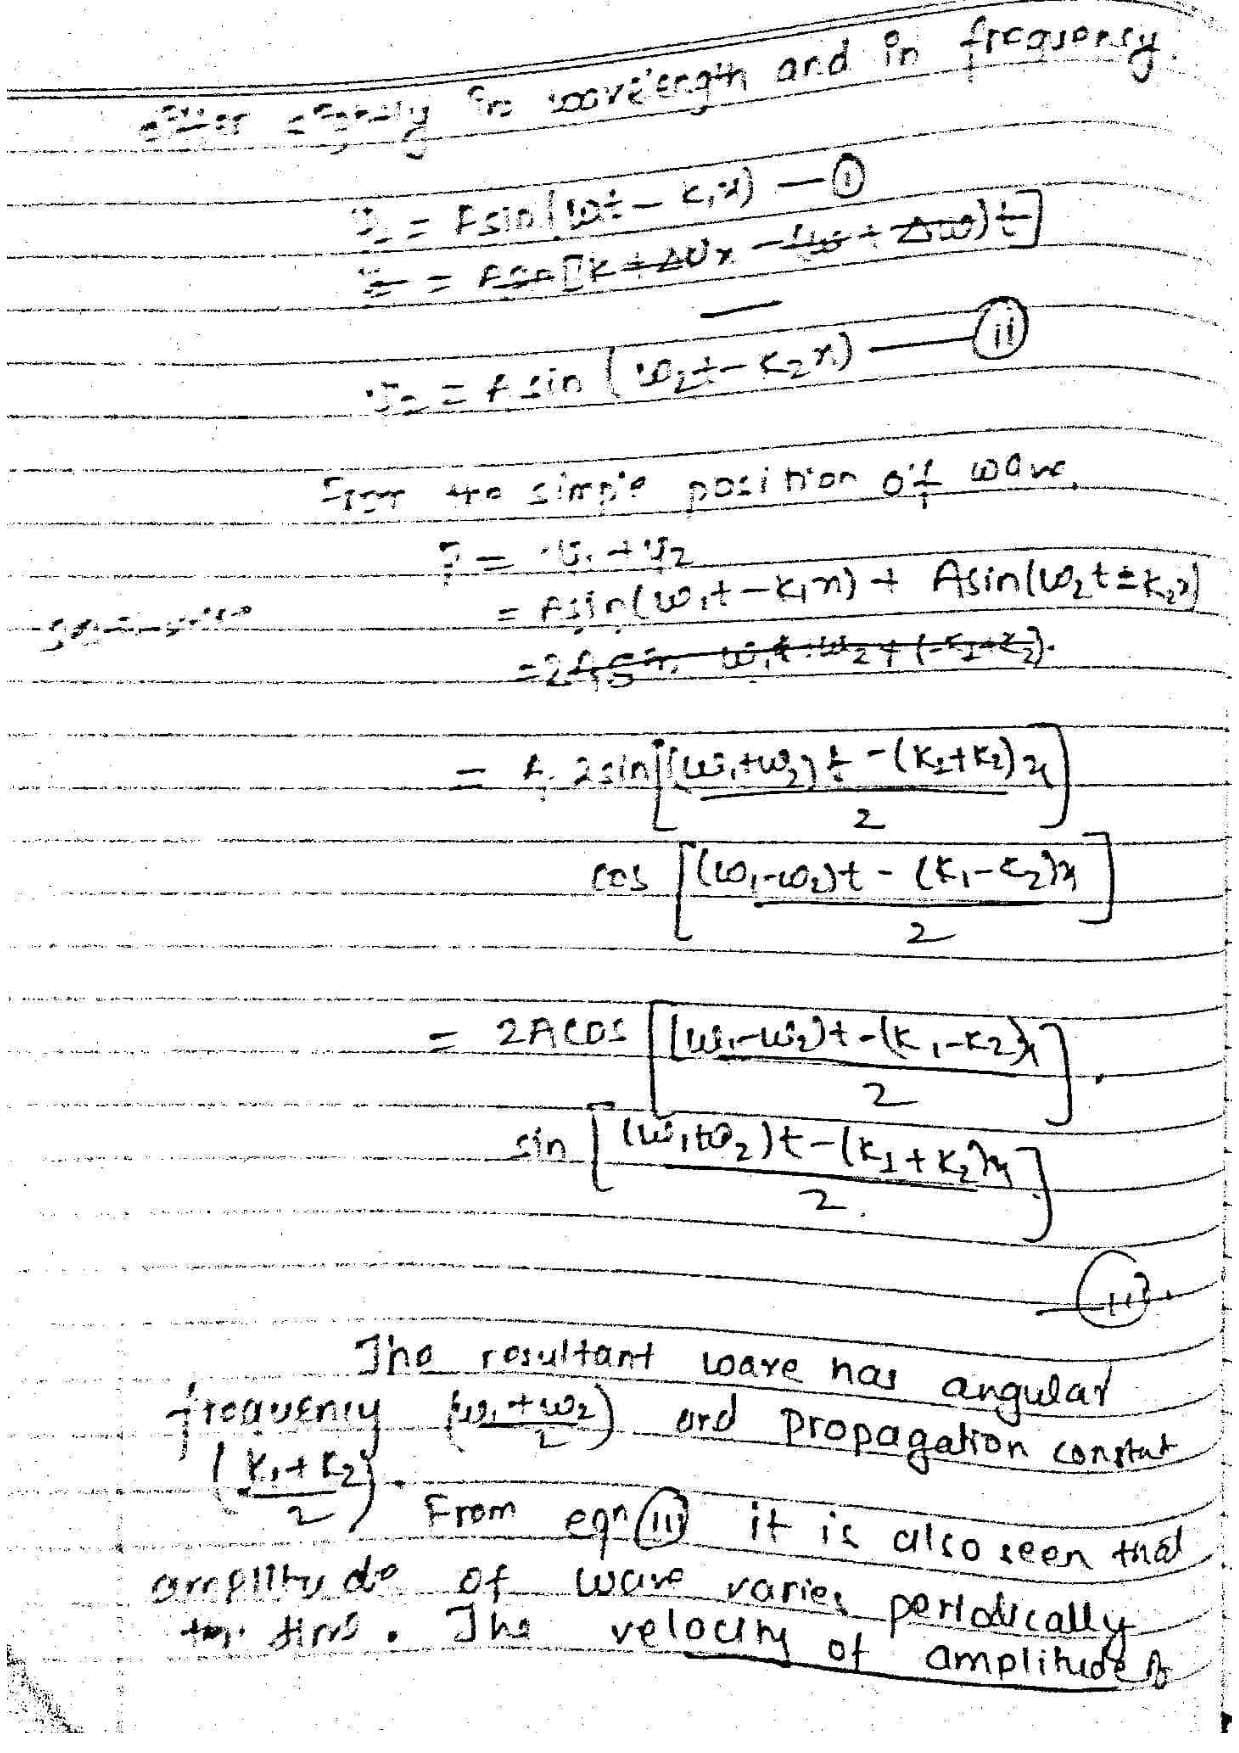 differ slightly in wavelength and in frequency.
y₁ = Asin(ωt – k₁x) — ⓘ
= Asin[(k + Δk)x – (ω + Δω)t]
y₂ = A sin (ω₂t – k₂x) — (ii)
From the simple position of wave,
y = y₁ + y₂
= Asin(ω₁t – k₁x) + Asin(ω₂t ± k₂x)
= A. 2sin[((ω₁+ω₂)t – (k₁+k₂)x)/2]
cos [((ω₁–ω₂)t – (k₁–k₂)x)/2]
= 2Acos [((ω₁–ω₂)t – (k₁–k₂)x)/2].
sin [((ω₁+ω₂)t – (k₁+k₂)x)/2.]
— (iii).
The resultant wave has angular
frequency ((ω₁+ω₂)/2) and propagation constat
((k₁+k₂)/2). From eqn (iii) it is also seen that
amplitude of wave varies periodically
time. The velocity of amplitude